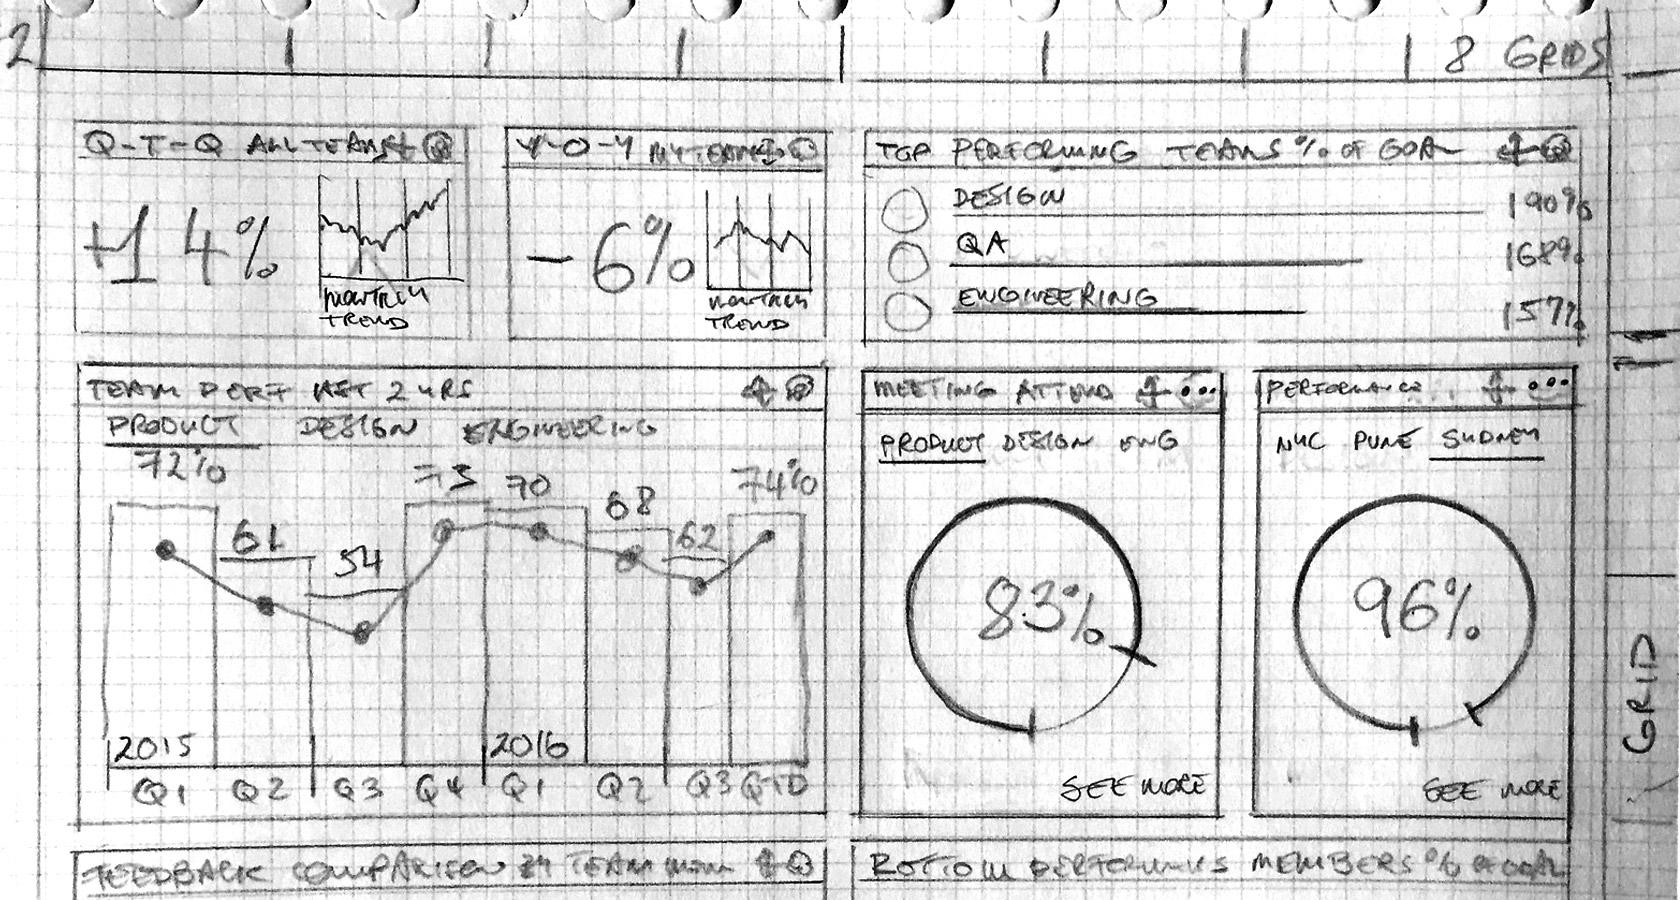 2
8 GRIDS
Q-T-Q ALL TEAMS
+14%
MONTHLY
TREND
Y-O-Y MY TEAMS
-6%
MONTHLY
TREND
TOP PERFORMING TEAMS % OF GOAL
DESIGN 190%
QA 168%
ENGINEERING 157%
TEAM PERF LAST 2 YRS
PRODUCT DESIGN ENGINEERING
72% 61 54 73 70 68 62 74%
2015 2016
Q1 Q2 Q3 Q4 Q1 Q2 Q3 QTD
MEETING ATTEND
PRODUCT DESIGN ENG
83%
SEE MORE
PERFORMANCE...
NYC PUNE SYDNEY
96%
SEE MORE
GRID
FEEDBACK COMPARISON BY TEAM
BOTTOM PERFORMING MEMBERS % OF GOAL